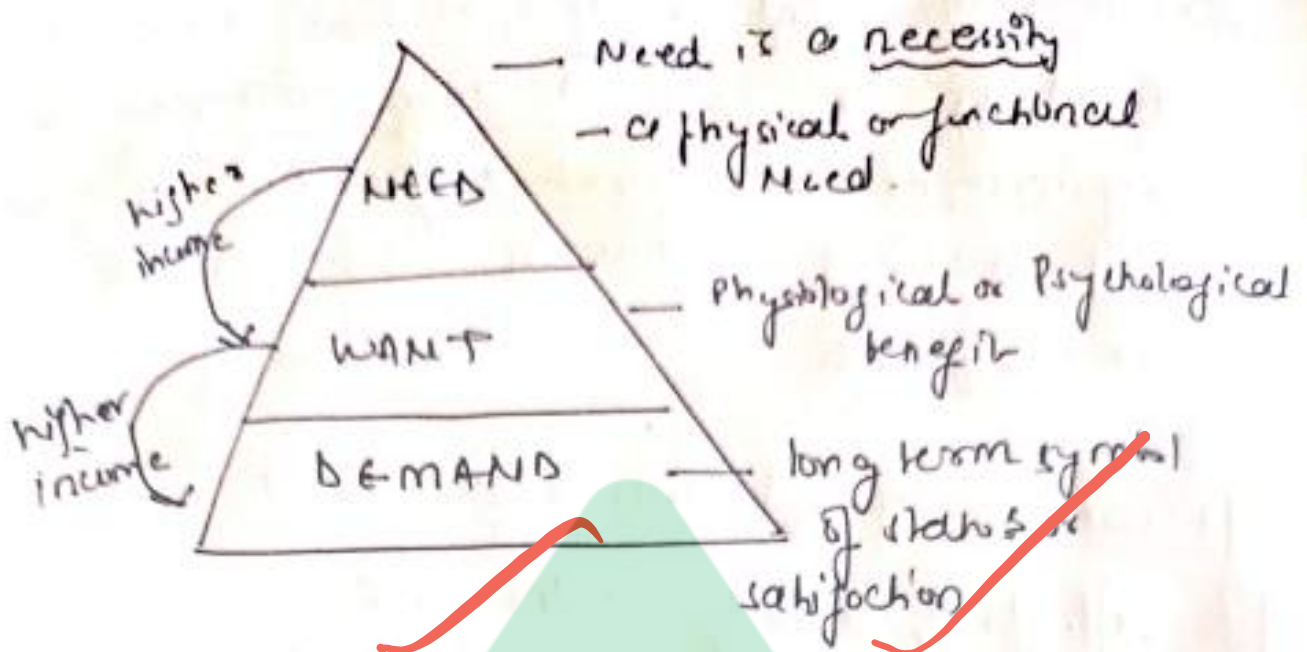 — Need is a necessity
— a physical or functional
Need.
NEED
higher
income
— Physiological or Psychological
benefit
WANT
higher
income
DEMAND
— long term symbol
of status or
satisfaction